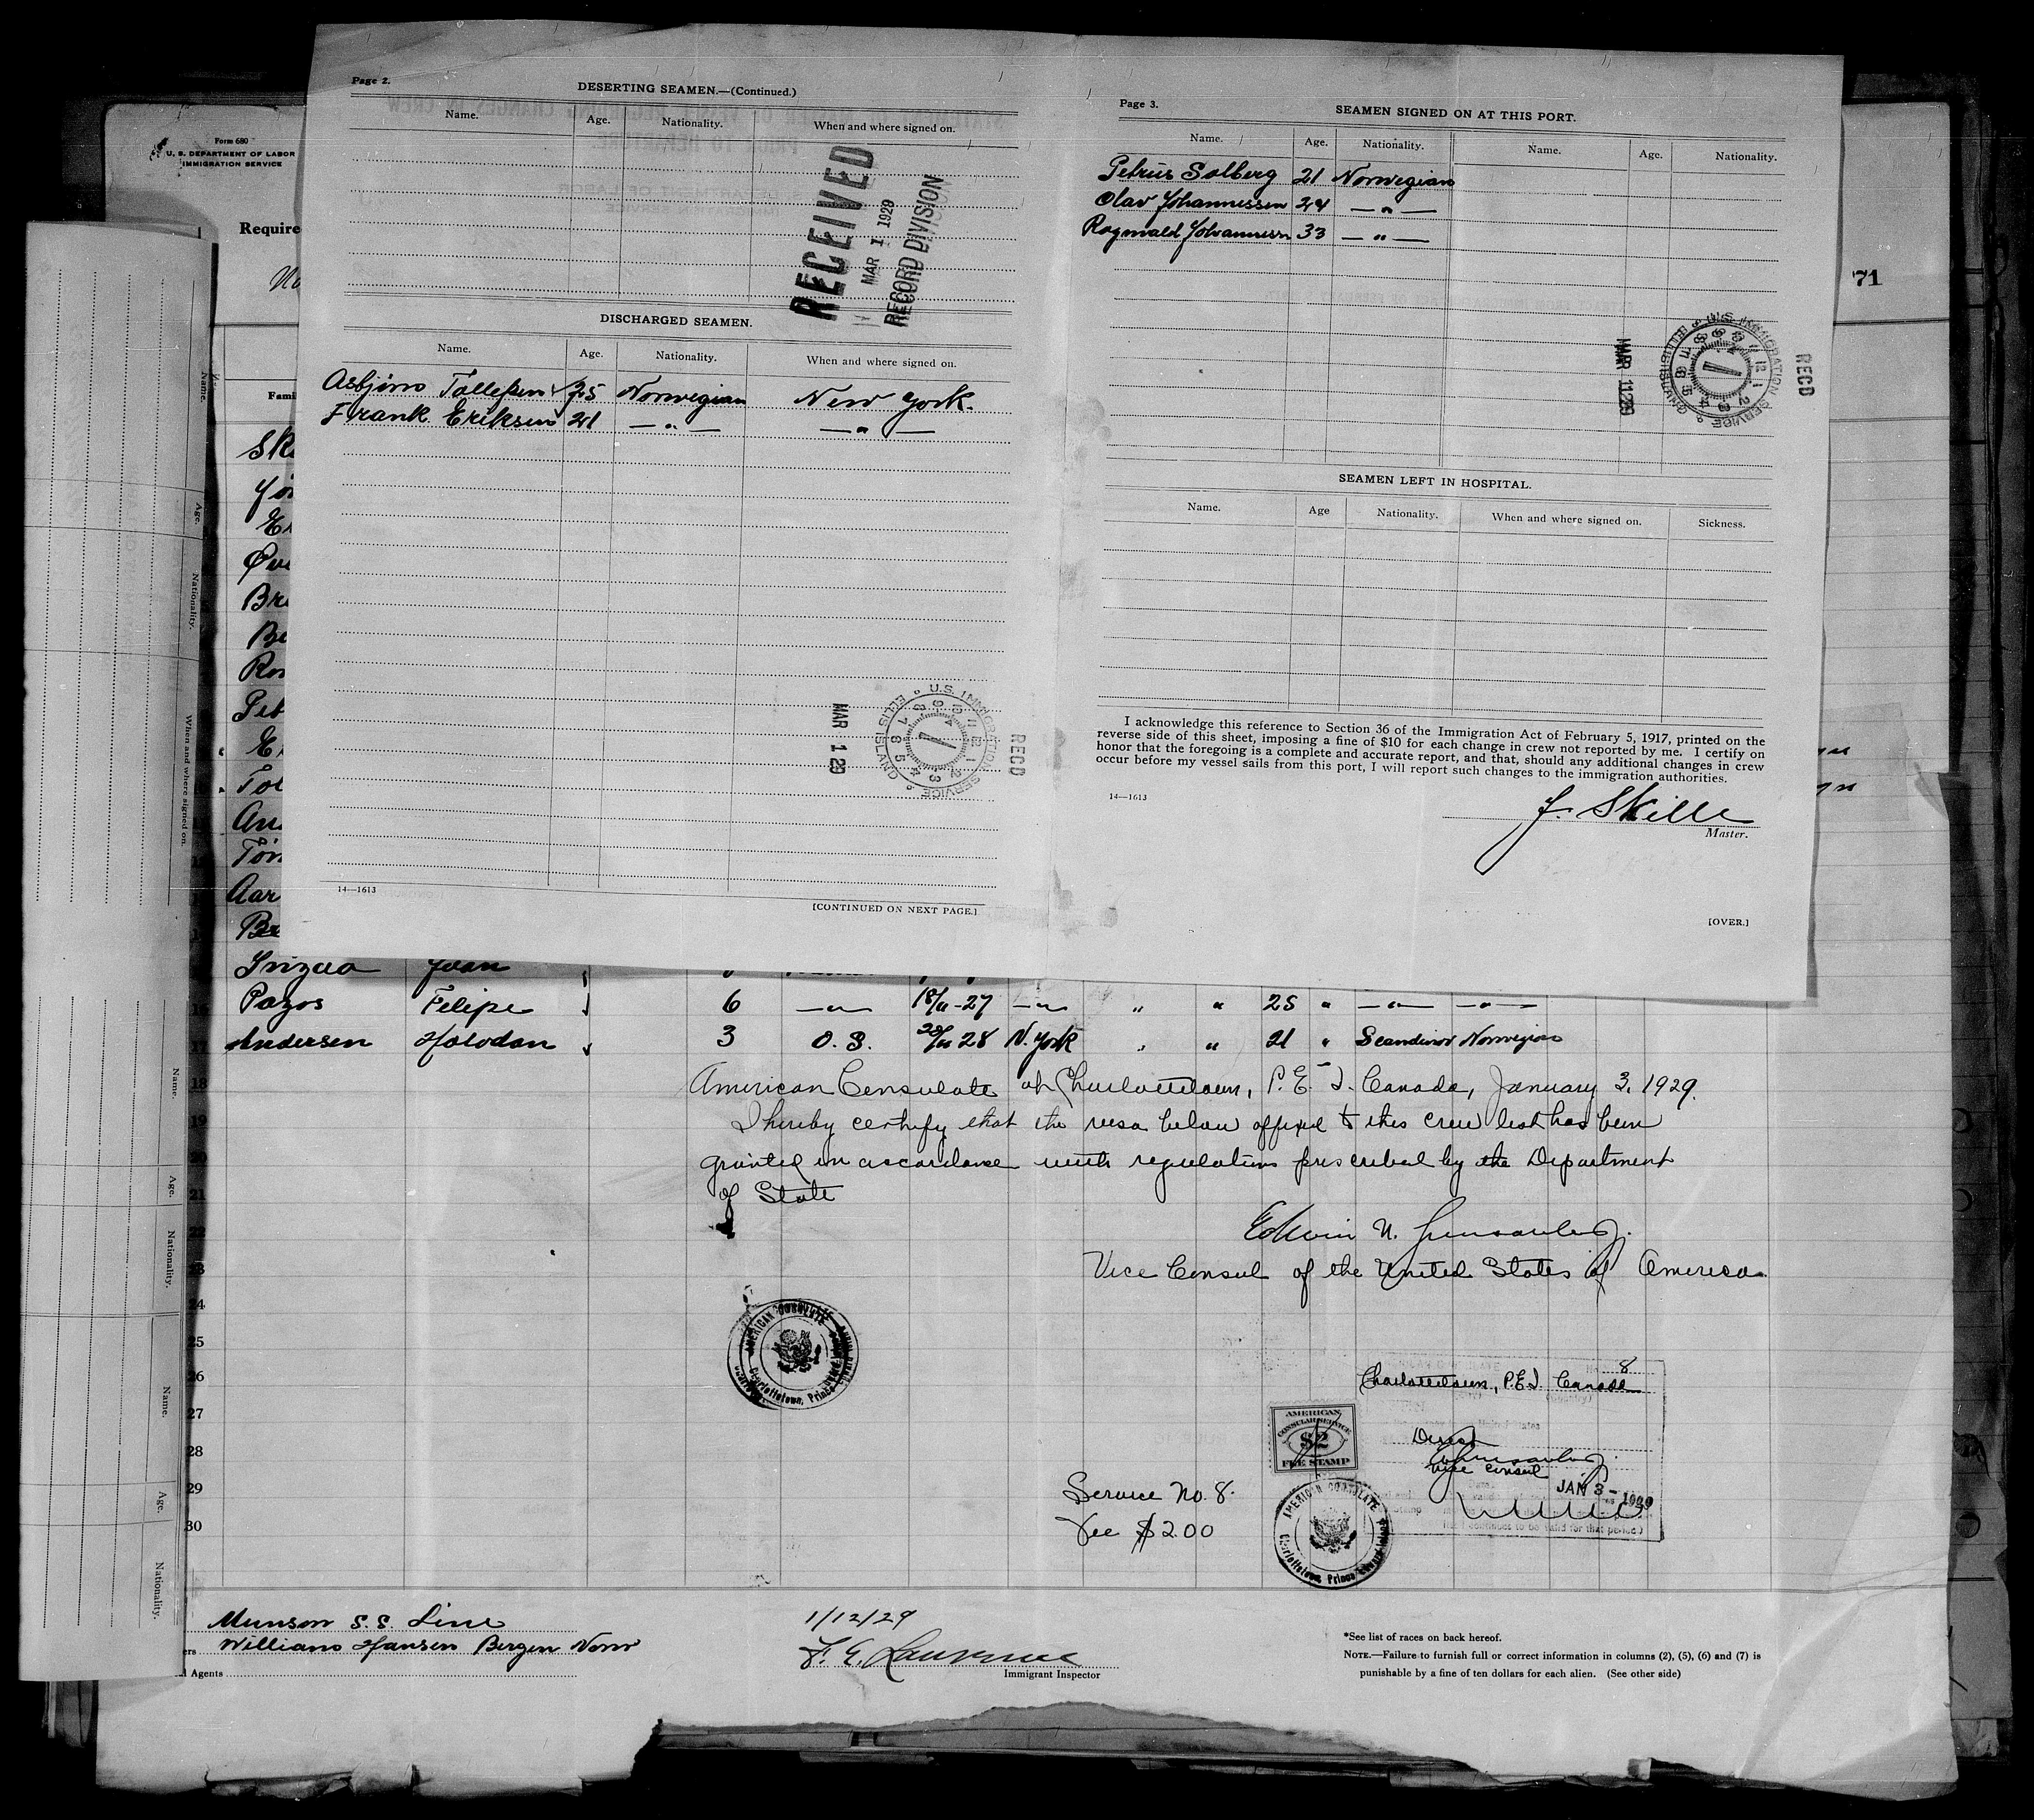 Page 2.
DESERTING SEAMEN.—(Continued.)
Name. Age. Nationality. When and where signed on.
RECEIVED
MAR 1 1929
RECORD DIVISION
DISCHARGED SEAMEN.
Name. Age. Nationality. When and where signed on.
Asbjörn Tollefsen 25 Norwegian New York.
Frank Eriksen 21 —"— —"—
RECD
U.S. IMMIGRATION SERVICE
ELLIS ISLAND
MAR 1 29
14—1613
[CONTINUED ON NEXT PAGE.]
Page 3.
SEAMEN SIGNED ON AT THIS PORT.
Name. Age. Nationality. Name. Age. Nationality.
Petrus Solberg 21 Norwegian
Olav Johannessen 24 —"—
Ragnvald Johannessen 33 —"—
RECD
U.S. IMMIGRATION SERVICE
ELLIS ISLAND
SEAMEN LEFT IN HOSPITAL.
Name. Age Nationality. When and where signed on. Sickness.
I acknowledge this reference to Section 36 of the Immigration Act of February 5, 1917, printed on the
reverse side of this sheet, imposing a fine of $10 for each change in crew not reported by me. I certify on
honor that the foregoing is a complete and accurate report, and that, should any additional changes in crew
occur before my vessel sails from this port, I will report such changes to the immigration authorities.
14—1613
J. Skille
Master.
[OVER.]
Form 680
U. S. DEPARTMENT OF LABOR
IMMIGRATION SERVICE
Require
71
Fami
Name. Age. Nationality. When and where signed on.
Name. Age. Nationality.
Name. Age. Nationality.
Juan
16 Pazos Felipe 6 —"— 18/11-27 —"— " " 25 " —"— —"—
17 Andersen Halvdan 3 O.S. 28 N. York " " 21 " Scandinav Norwegian
18 American Consulate at Charlottetown, P.E.I. Canada, January 3, 1929.
19 I hereby certify that the visa below affixed to this crew list has been
20 granted in accordance with regulations prescribed by the Department
21 of State
22 Edwin N.
23 Vice Consul of the United States of America
24
25
26
27
28
29
30
AMERICAN CONSULATE
Charlottetown, Prince Edward Island
8
Charlottetown, P.E.I. Canada
AMERICAN
CONSULAR SERVICE
$2
FEE STAMP
Direct
Vice Consul
JAN 3 - 1929
Service No. 8.
Fee $2.00
AMERICAN CONSULATE
Charlottetown, Prince Edward Island
Munson S.S. Line
Williams Hansen Bergen Norw
Agents
1/12/29
F. E. Lawrence
Immigrant Inspector
*See list of races on back hereof.
NOTE.—Failure to furnish full or correct information in columns (2), (5), (6) and (7) is
punishable by a fine of ten dollars for each alien. (See other side)